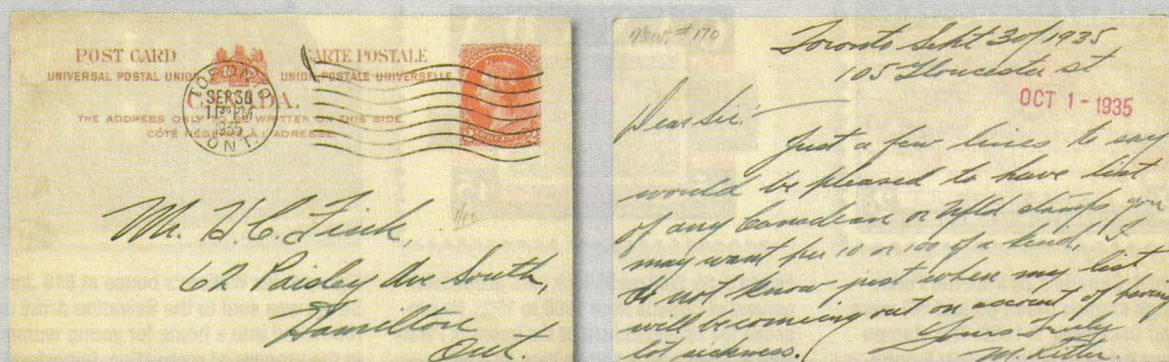 POST CARD CARTE POSTALE
UNIVERSAL POSTAL UNION UNION POSTALE UNIVERSELLE
CANADA.
THE ADDRESS ONLY TO BE WRITTEN ON THIS SIDE
CÔTÉ RÉSERVÉ À L'ADRESSE
TORONTO
SEP 30
1935
ONT.
Mr. H. C. Fink
62 Paisley Ave South,
Hamilton
Ont.
# 170
Toronto Sept 30/1935
105 Gloucester st
OCT 1 - 1935
Dear Sir:
Just a few lines to say
would be pleased to have list
of any Canadian or Nfld stamps you
may want per 10 or 100 of a kind, I
do not know just when my list
will be coming out on account of having
lot sickness. Yours Truly
M.